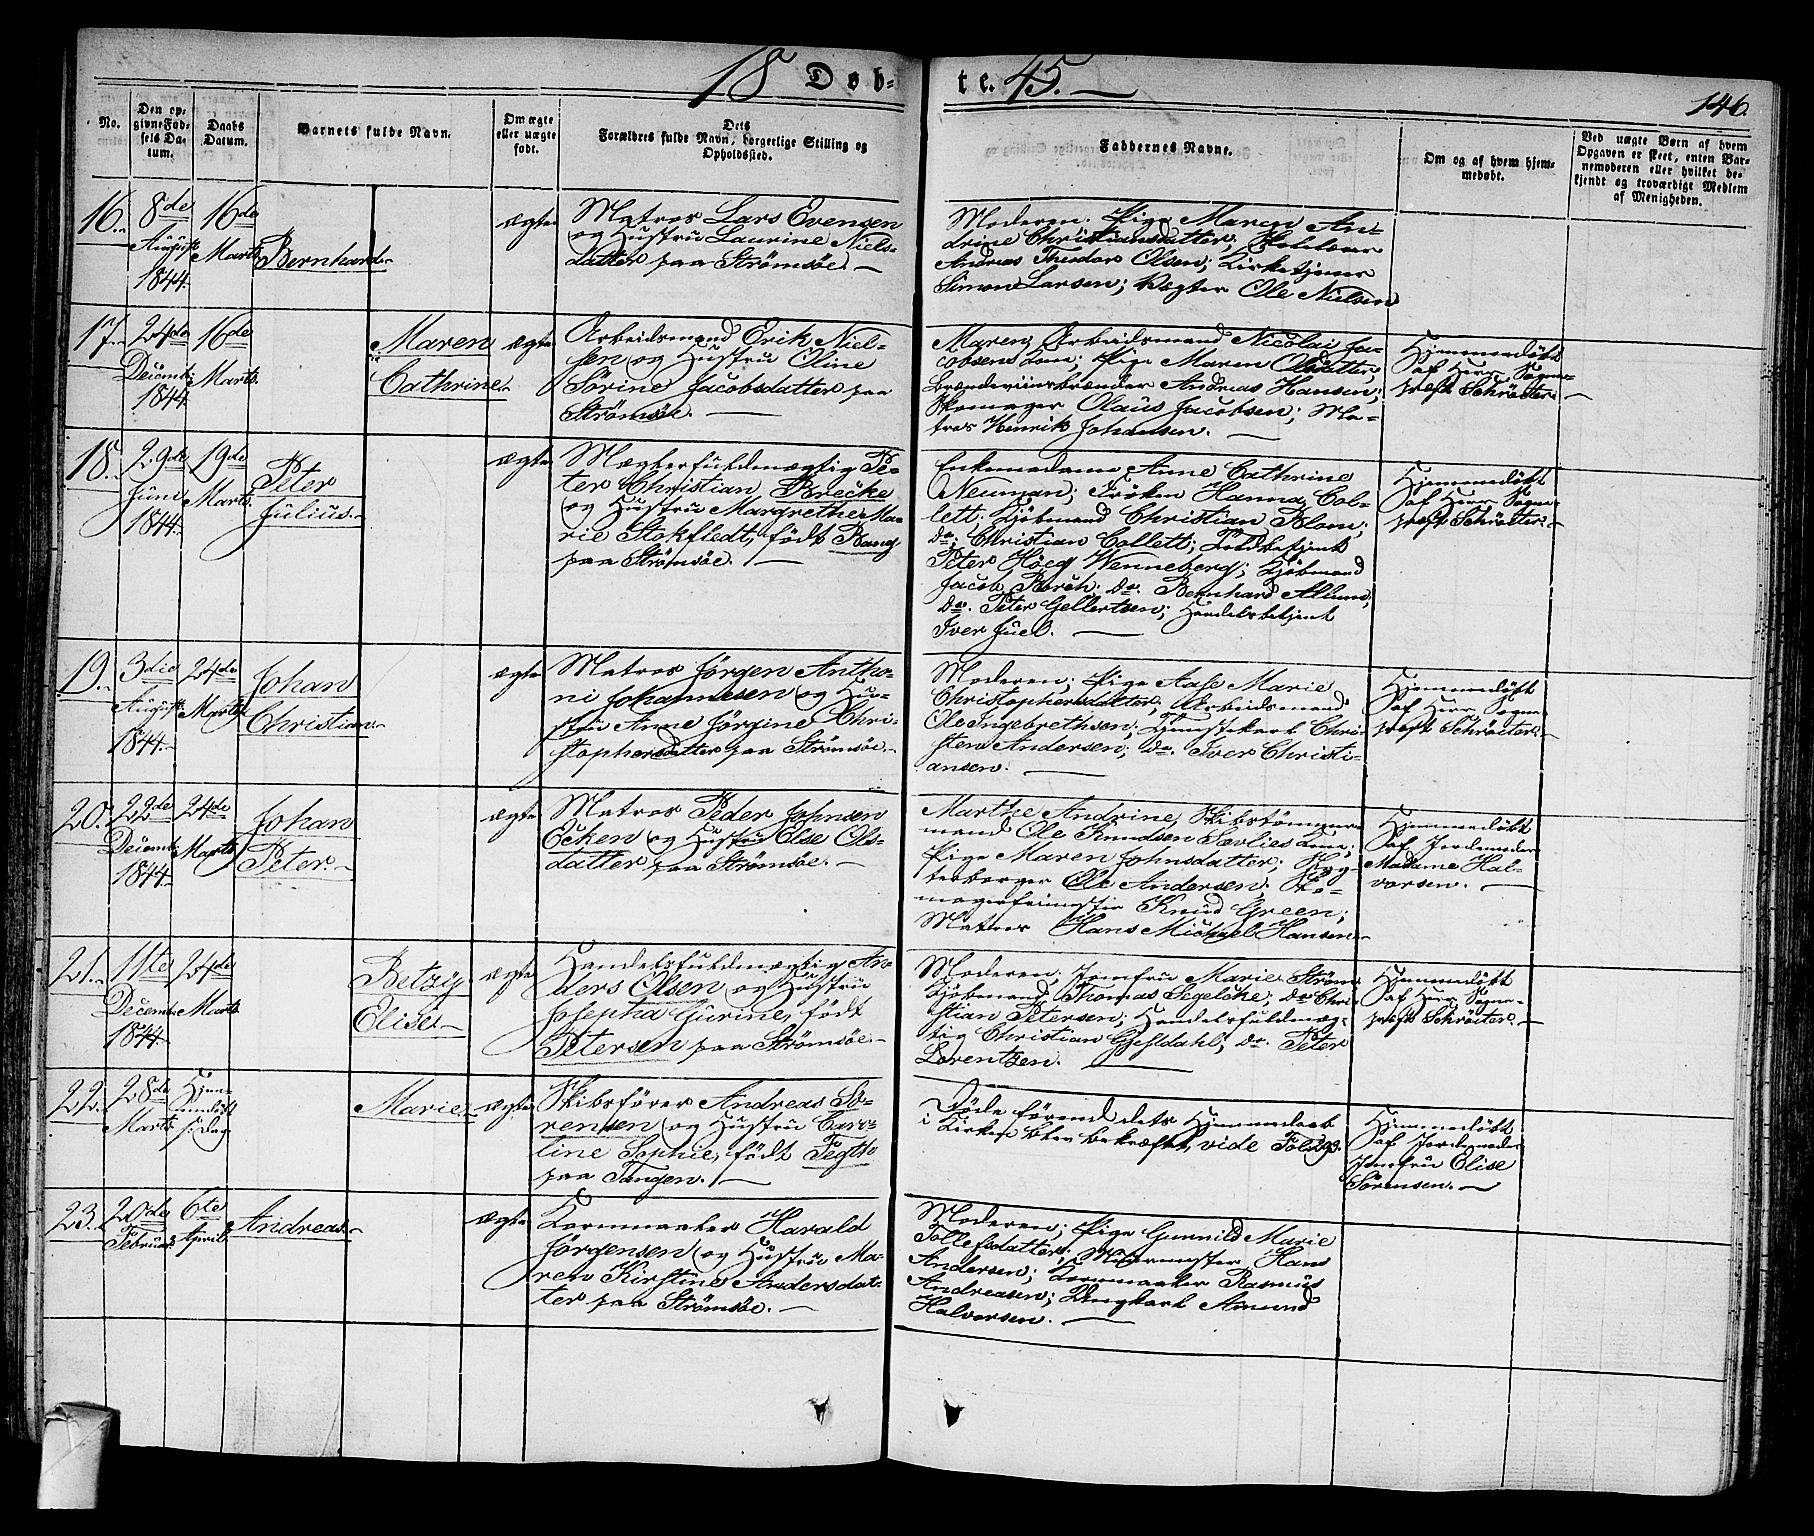 18 Døb-
te. 45.
146.
No.
Den op-
givne Fød-
sels Da-
tum.
Daabs
Datum.
Barnets fulde Navn.
Om ægte
eller uægte
født.
Dets
Forældres fulde Navn, borgerlige Stilling og
Opholdssted.
Faddernes Navne.
Om og af hvem hjem-
medøbt.
Ved uægte Børn af hvem
Opgaven er skeet, enten Bar-
nemoderen eller hvilket be-
kjendt og troværdigt Medlem
af Menigheden.
16.
8de
August
1844.
16de
Marts
Bernhard.
ægte
Matros Lars Evensen
og Hustru Laurine Niels-
datter paa Strømsøe.
Moderen; Pige Maren An-
drine Christiansdatter;
Andreas Theodor Olsen; Kirketjener
Simon Larsen; Vægter Ole Nielsen
17.
24de
Decemb.
1844.
16de
Marts.
Maren
Cathrine.
ægte
Arbeidsmand Erik Niel-
sen og Hustru Oline
Sørine Jacobsdatter paa
Strømsøe.
Maren, Arbeidsmand Nicolai Ja-
cobsens Kone; Pige Maren Olsdatter;
Brændeviinsbrænder Andreas Hansen;
Skomager Olaus Jacobsen; Ma-
tros Henrik Johansen.
Hjemmedøbt
af Herr Sogne-
præst Schröeter.
18.
29de
Juni
1844.
19de
Marts.
Peter
Julius.
ægte
Mægterfuldmægtig Pe-
ter Christian Brecke
og Hustru Margrethe Ma-
rie Stokfledt, født Bang
paa Strømsøe.
Enkemadame Anne Cathrine
Neuman; Frøken Hanna Col-
lett; Kjøbmand Christian Blom;
do. Christian Collett; Toldbetjent
Peter Höeg Wenneberg; Kjøbmand
Jacob Borch; do. Bernhard Allum;
do. Peter Gellertsen; Handelsbetjent
Iver Juel.
Hjemmedøbt
af Herr Sogne-
præst Schröeter.
19.
3die
August
1844.
24de
Marts
Johan
Christian.
ægte
Matros Jørgen Antho-
ni Johannesen og Hu-
stru Anne Jørgine Chri-
stophersdatter paa Strømsøe.
Moderen; Pige Aase Marie
Christophersdatter; Arbeidsmand
Ole Ingebrethsen; Tjenestekarl Chri-
sten Andersen; do. Iver Christi-
ansen.
Hjemmedøbt
af Herr Sogne-
præst Schröeter.
20.
22de
Decemb.
1844.
24de
Marts
Johan
Peter.
ægte
Matros Peder Johnsen
Ecken og Hustru Else Ols-
datter paa Strømsøe.
Marthe Andrine, Skibstømmer-
mand Ole Knudsen Sævlies Kone;
Pige Maren Johnsdatter; Bryg-
gesborger Ole Andersen; Sko-
magermester Knud Green;
Matros Hans Michael Hansen.
Hjemmedøbt
af Jordemoder
Madame Hal-
vorsen.
21.
11te
Decemb.
1844.
24de
Marts
Betzy
Elise.
ægte
Handelsfuldmægtig An-
ders Olsen og Hustru
Josepha Gurine, født
Petersen paa Strømsøe.
Moderen; Jomfru Marie Strøm;
Kjøbmand Thomas Segelcke; do. Chri-
stian Petersen; Handelsfuldmæg-
tig Christian Gjesldahl; do. Peter
Lorentzen.
Hjemmedøbt
af Herr Sogne-
præst Schröeter.
22.
28de
Marts
Hjem-
medøbt
s. Dag
Marie.
ægte
Skibsfører Andreas Sø-
rensen og Hustru Caro-
line Sophie, født Fegth
paa Tangen.
Døde førend dets Hjemmedaab
i Kirken blev bekræftet, vide Fol. 293.
Hjemmedøbt
af Jordemoder
Jomfru Elise
Sørensen.
23.
20de
Februar
6te
April
Andreas.
ægte
Kornmaaler Harald
Jørgensen og Hustru Ma-
ren Kirstine Andersdat-
ter paa Strømsøe.
Moderen; Pige Gunnild Marie
Tollefsdatter; Murmester Hans
Andersen; Kornmaaler Rasmus
Andreasen; Ungkarl Amund
Halvorsen.